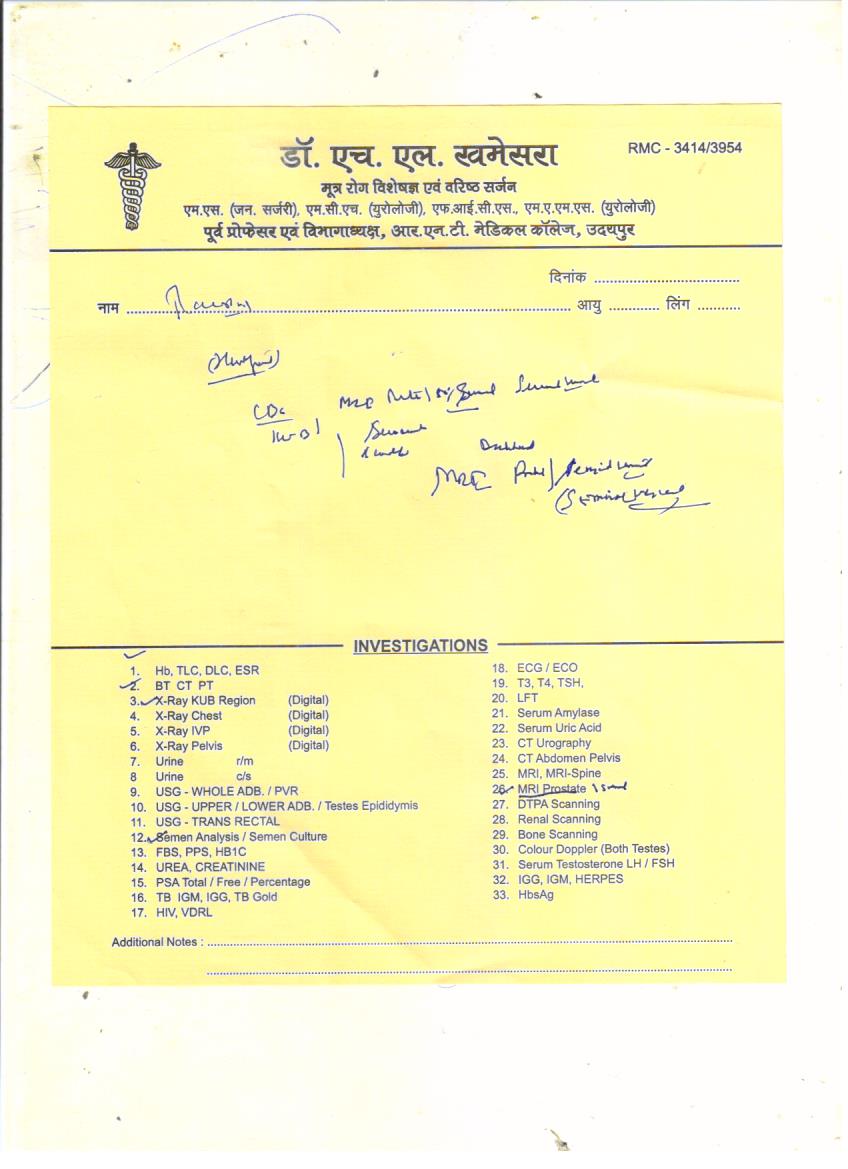 डॉ. एच. एल. खमेसरा
RMC - 3414/3954
मूत्र रोग विशेषज्ञ एवं वरिष्ठ सर्जन
एम.एस. (जन. सर्जरी), एम.सी.एच. (युरोलोजी), एफ.आई.सी.एस., एम.ए.एम.एस. (युरोलोजी)
पूर्व प्रोफेसर एवं विभागाध्यक्ष, आर.एन.टी. मेडिकल कॉलेज, उदयपुर
दिनांक
नाम आयु लिंग
MRI
(Seminal Vesical
INVESTIGATIONS
1. Hb, TLC, DLC, ESR
2. BT CT PT
3. X-Ray KUB Region (Digital)
4. X-Ray Chest (Digital)
5. X-Ray IVP (Digital)
6. X-Ray Pelvis (Digital)
7. Urine r/m
8 Urine c/s
9. USG - WHOLE ADB. / PVR
10. USG - UPPER / LOWER ADB. / Testes Epididymis
11. USG - TRANS RECTAL
12. Semen Analysis / Semen Culture
13. FBS, PPS, HB1C
14. UREA, CREATININE
15. PSA Total / Free / Percentage
16. TB IGM, IGG, TB Gold
17. HIV, VDRL
18. ECG / ECO
19. T3, T4, TSH,
20. LFT
21. Serum Amylase
22. Serum Uric Acid
23. CT Urography
24. CT Abdomen Pelvis
25. MRI, MRI-Spine
26. MRI Prostate
27. DTPA Scanning
28. Renal Scanning
29. Bone Scanning
30. Colour Doppler (Both Testes)
31. Serum Testosterone LH / FSH
32. IGG, IGM, HERPES
33. HbsAg
Additional Notes :